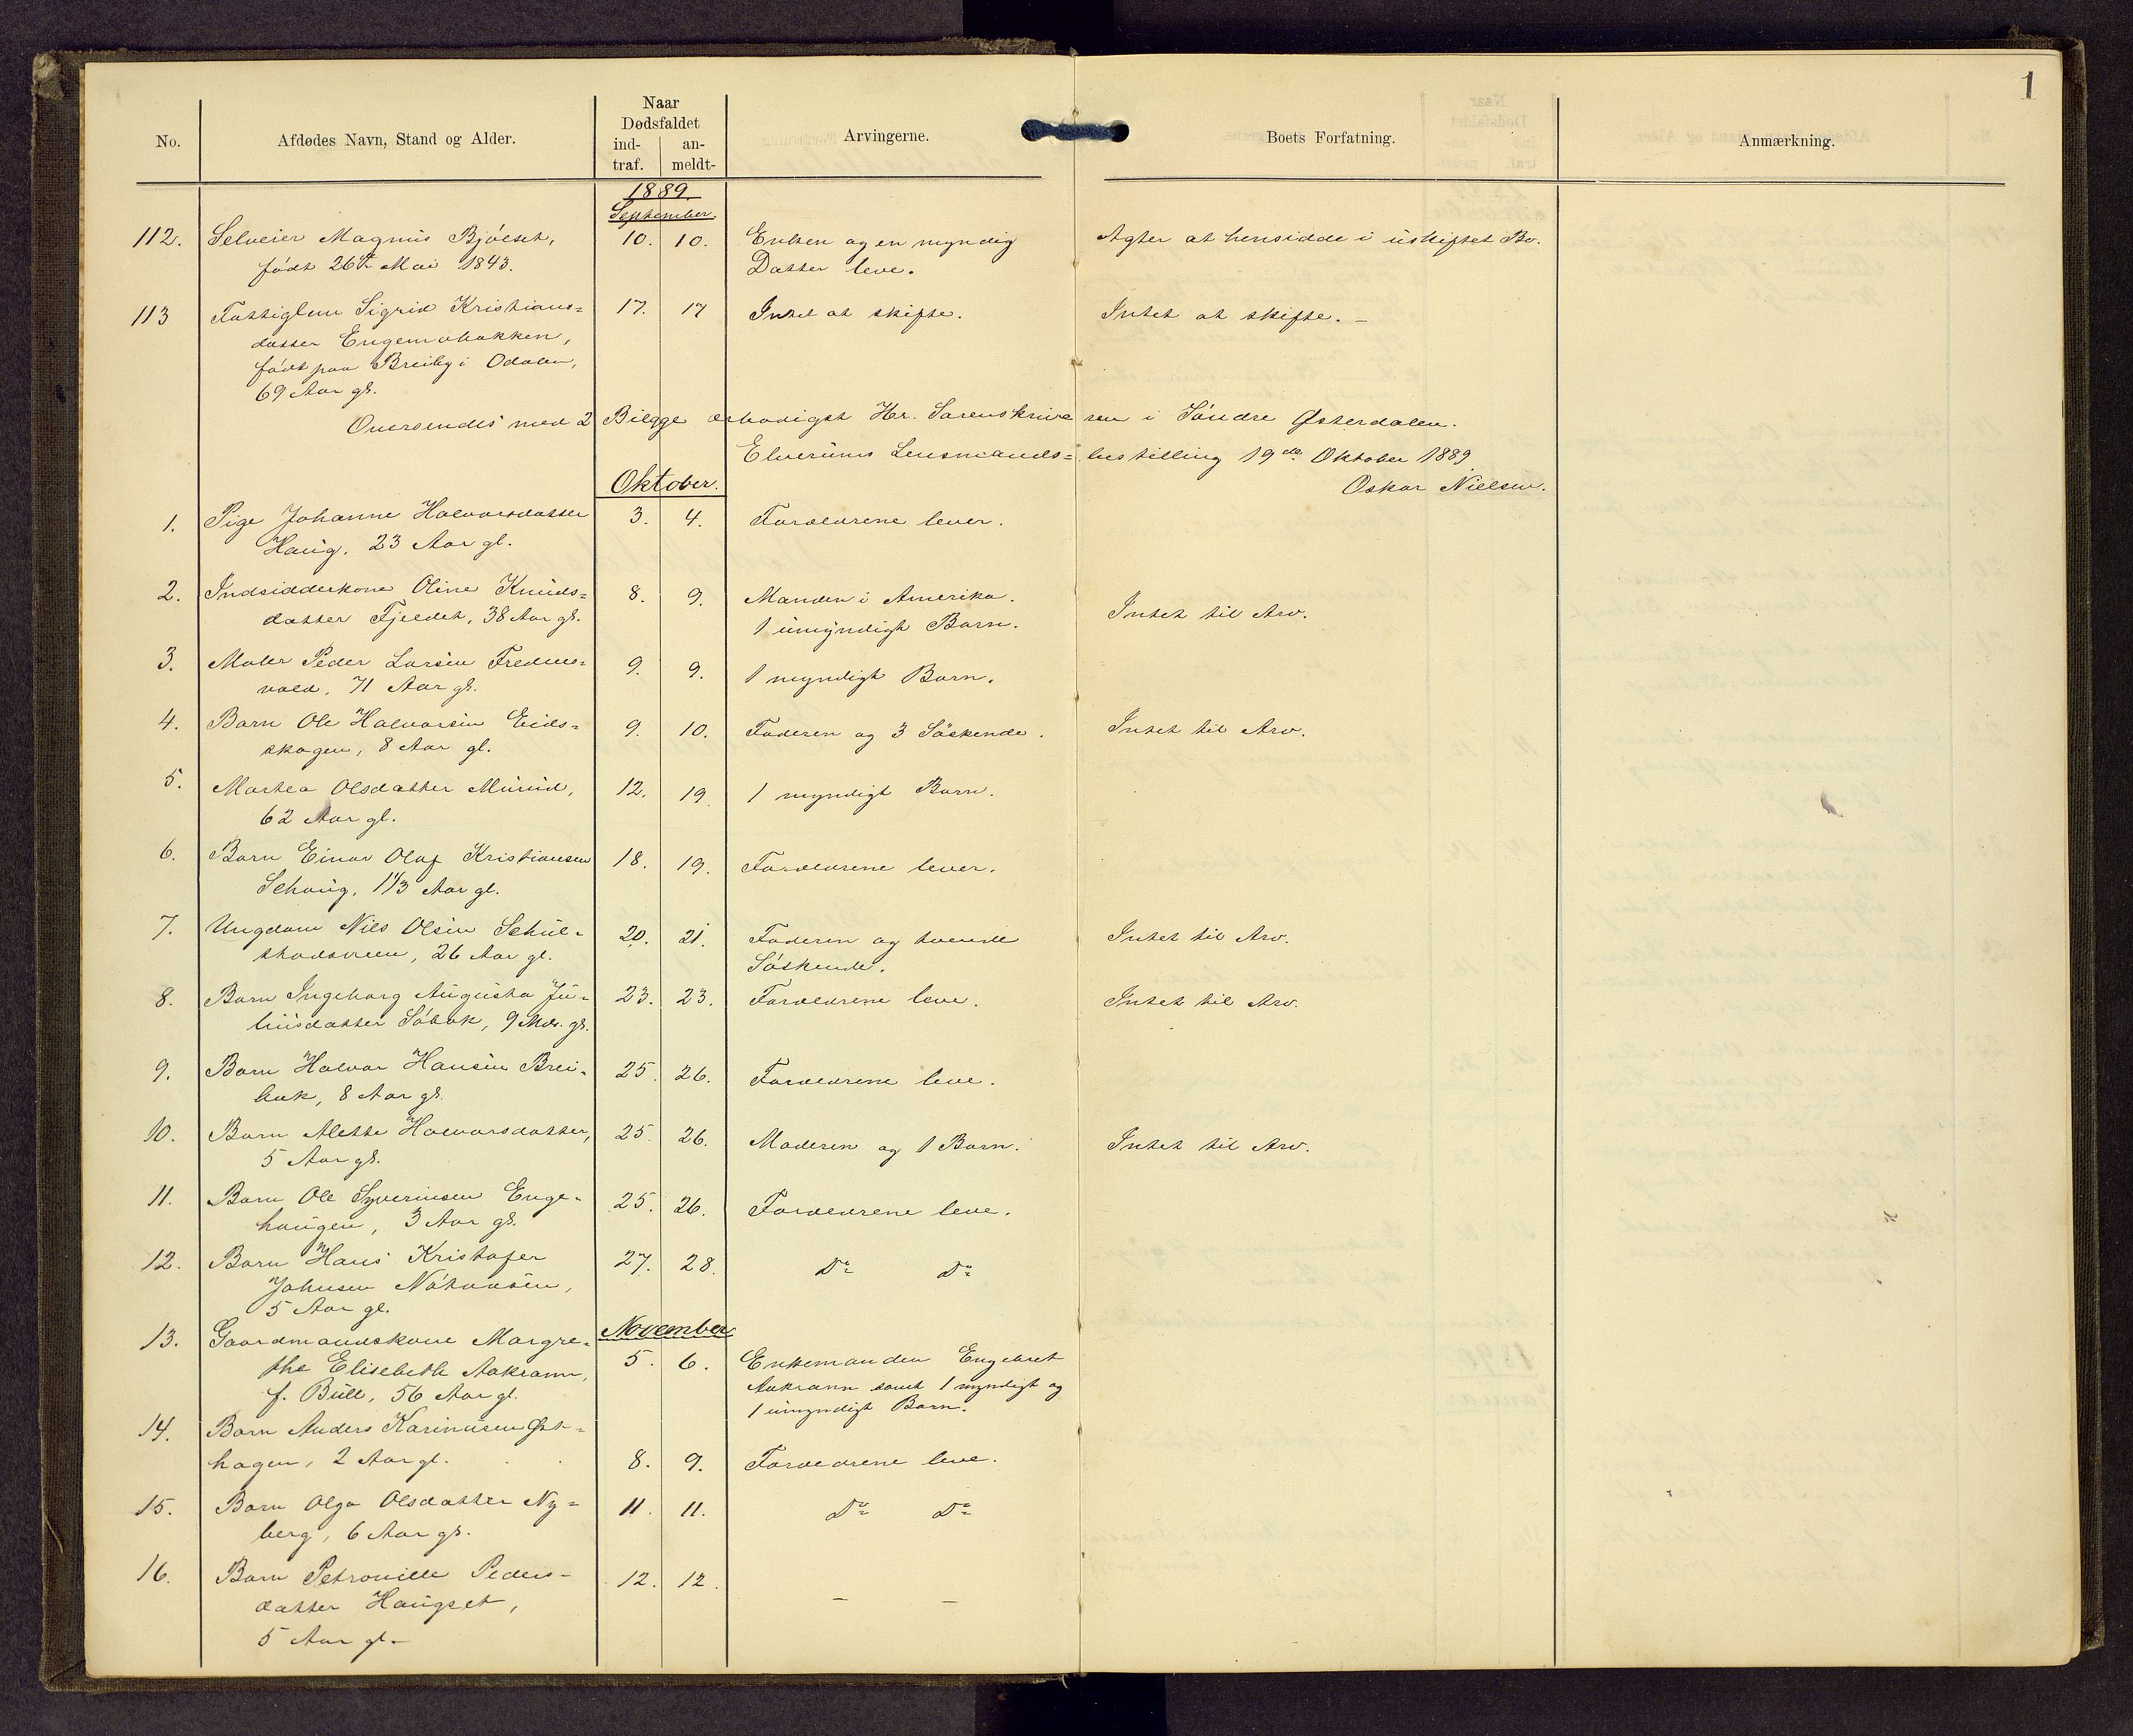 1
Naar
Dødsfaldet
No. Afdødes Navn, Stand og Alder. ind- an- Arvingerne. Boets Forfatning. Anmærkning.
traf. meldt-
1889.
September.
112. Selveier Magnus Bjölset, 10. 10. Enken og en myndig Agter at hensidde i uskiftet Bo.
födt 26de Mai 1843. Datter leve.
113 Fattiglem Sigrid Kristians= 17. 17 Intet at skifte. Intet at skifte. –
datter Engemobakken,
födt paa Breiby i Odalen,
69 Aar gl.
Oversendes med 2 Bilage ærbödigst Hr. Sorenskriveren i Söndre Østerdalen.
Elverums Lensmands=bestilling 19de Oktober 1889.
Oskar Nielsen.
Oktober.
1. Pige Johanne Halvorsdatter 3. 4. Forældrene lever.
Haug. 23 Aar gl.
2. Indsidderkone Oline Knuds= 8. 9. Manden i Amerika. Intet til Arv.
datter Fjeldet, 38 Aar gl. 1 umyndigt Barn.
3. Maler Peder Larsen Fredens= 9. 9. 1 myndigt Barn.
vold, 71 Aar gl.
4. Barn Ole Halvorsen Eids= 9. 10. Faderen og 3 Söskende. Intet til Arv.
skogen, 8 Aar gl.
5. Marthea Olsdatter Murud, 12. 19. 1 myndigt Barn.
62 Aar gl.
6. Barn Einar Olaf Kristiansen 18. 19. Forældrene lever.
Sehaug, 1 1/3 Aar gl.
7. Ungdom Nils Olsen Schul= 20. 21. Faderen og tvende Intet til Arv.
stadsveen, 26 Aar gl. Söskende.
8. Barn Ingeborg Augusta Ju= 23. 23. Forældrene leve. Intet til Arv.
liusdatter Söbak, 9 Mdr. gl.
9. Barn Halvor Hansen Brei= 25. 26. Forældrene leve.
bak, 8 Aar gl.
10. Barn Alette Halvorsdatter, 25. 26. Moderen og 1 Barn. Intet til Arv.
5 Aar gl.
11. Barn Ole Syverinsen Enge= 25. 26. Forældrene leve.
haugen, 3 Aar gl.
12. Barn Hans Kristofer 27. 28. Do Do
Johnsen Nötaasen,
5 Aar gl.
November
13. Gaardmandskone Margre= 5. 6. Enkemanden Engebret
the Elisebeth Aakrann, Aakrann samt 1 myndigt og
f. Bull, 56 Aar gl. 1 umyndigt Barn.
14. Barn Anders Karinusen Øst=
hagen, 2 Aar gl. 8. 9. Forældrene leve.
15. Barn Olga Olsdatter Ny= 11. 11. Do Do
berg, 6 Aar gl.
16. Barn Petronille Peders= 12. 12. – –
datter Haugset,
5 Aar gl.